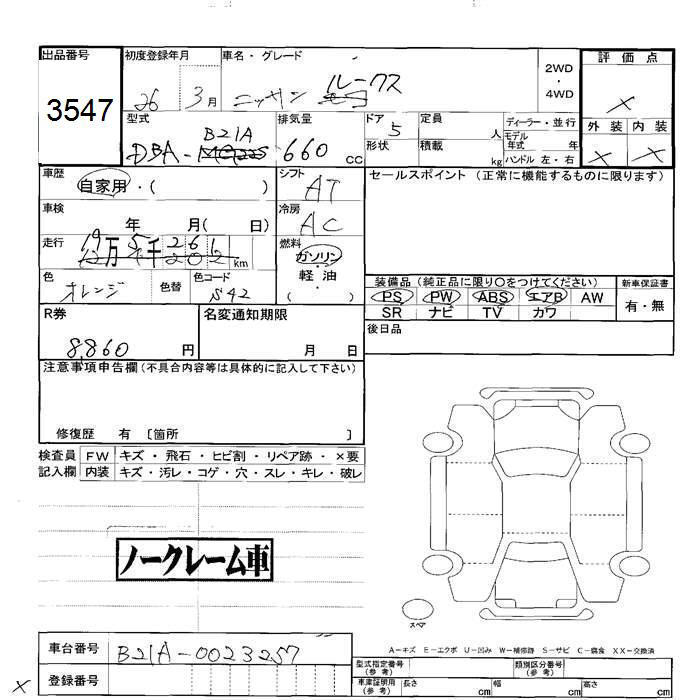 出品番号
3547
初度登録年月
26 3月
車名・グレード
ニッサン ルークス
2WD
・
4WD
評価点
×
外装 内装
× ×
型式
B21A
DBA-
排気量
660 cc
ドア 5
形状
定員 人
積載 kg
ディーラー・並行
モデル年式 年
ハンドル 左・右
車歴
自家用・( )
シフト
AT
セールスポイント (正常に機能するものに限ります)
車検
年 月( 日)
冷房
AC
走行
万 千 261 km
燃料
ガソリン
・
軽油
( )
色
オレンジ
色替
色コード
S42
装備品(純正品に限り○をつけてください)
PS PW ABS エアB AW
SR ナビ TV カワ
新車保証書
有・無
R券
8,860 円
名変通知期限
月 日
後日品
注意事項申告欄(不具合内容等は具体的に記入して下さい)
修復歴 有 [箇所 ]
検査員 FW キズ・飛石・ヒビ割・リペア跡・×要
記入欄 内装 キズ・汚レ・コゲ・穴・スレ・キレ・破レ
ノークレーム車
スペア
A-キズ E-エクボ U-凹み W-補修跡 S-サビ C-腐食 XX-交換済
車台番号
B21A-0023257
登録番号
×
型式指定番号
(参考)
類別区分番号
(参考)
車庫証明用
(参考)
長さ cm
幅 cm
高さ cm